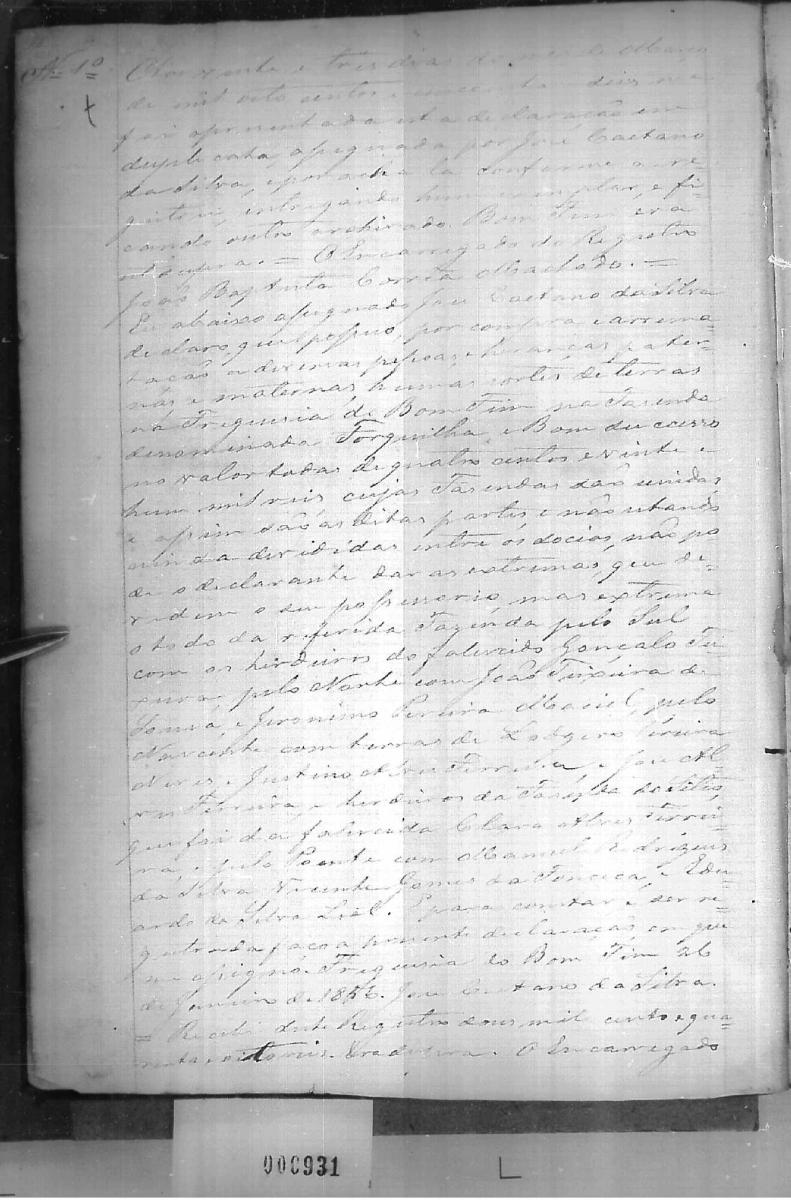 Nº 10
Aos vinte e tres dias do mes de Março
de mil oito centos e cincoenta e seis me
foi apresentada esta declaração em
duplicata, assignada por José Caetano
da Silva, e por achala conforme a re-
gistrei, entregando hum exemplar, e fi-
cando outro archivado. Bom Fim era
ut supra. = O Encarregado do Registro
João Baptista Corrêa Machado. =
Eu abaixo assignado José Caetano da Silva
declaro que possuo, por compra e arrema-
tação a diversas pessoas, e heranças pater-
nas e maternas humas sortes de terras
na Freguesia de Bom Fim na Fazenda
denominada Forquilha, e Bom successo
no valor todas de quatro centos e vinte e
hum mil reis cujas Fazendas são unidas
e assim são as ditas partes e não estando
ainda devididas entre os socios, não po
de o declarante dar as extremas, que de-
videm o seu possessorio, mas extrema
o todo da referida Fazenda pelo Sul
com os herdeiros do falecido Gonçalo Tei
xeira, pelo Norte com João Teixeira de
e Jeronimo Pereira Maciel, pelo
Nascente com terras de Pereira
Neves, Justino Alves Ferreira e José Al-
ves Ferreira, e herdeiros da Fazenda do Sitio,
que foi da falecida Clara Alves Ferrei-
ra, e pelo Poente com Manuel Rodrigues
da Silva Vicente Gomes da Fonceca, e Edu-
ardo da Silva Leal. E para constar e ser re-
gistrada faço a presente declaração em que
me assigno. Freguesia do Bom Fim 26
de Janeiro de 1856. José Caetano da Silva.
= Recebi deste Registro dous mil cento e qua-
renta e oito reis. Era ut supra. O Encarregado
000931
L